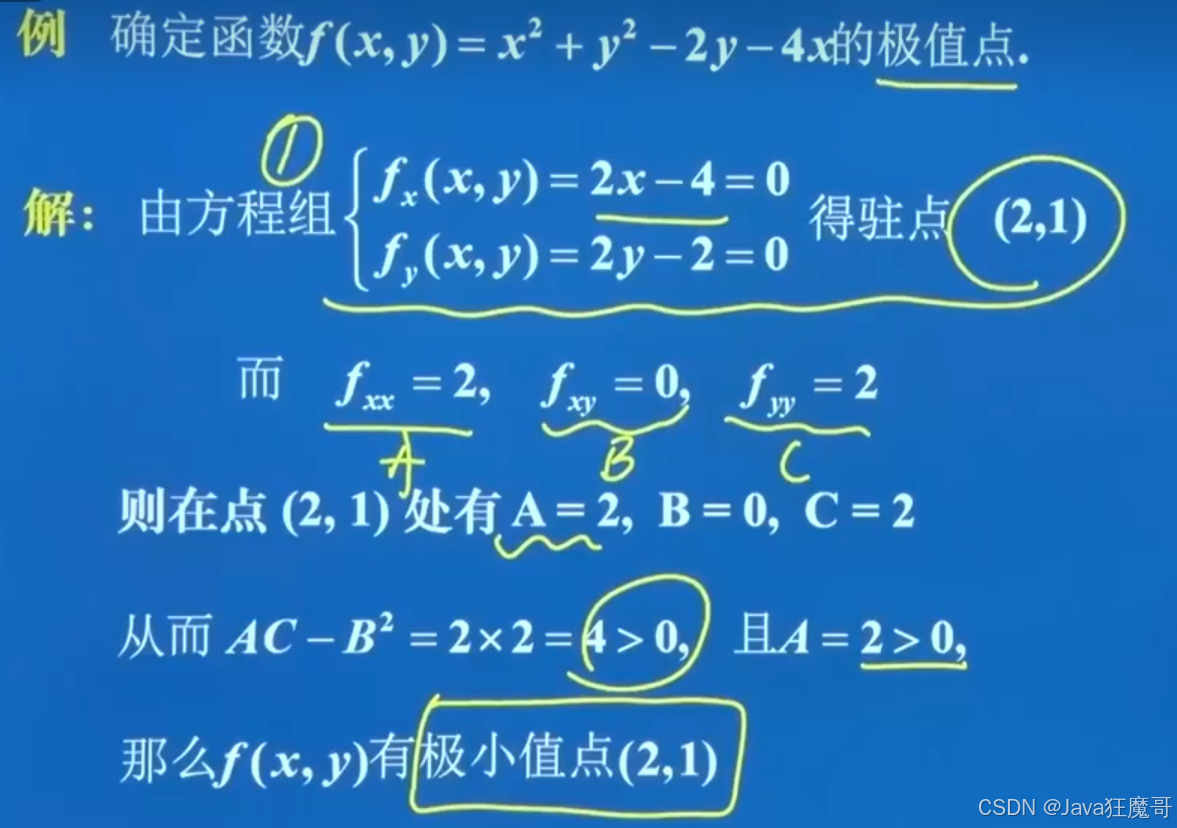 例 确定函数f(x,y)=x²+y²-2y-4x的极值点.
①
解: 由方程组 { f_x(x,y)=2x-4=0 得驻点 (2,1)
f_y(x,y)=2y-2=0
而 f_xx=2, f_xy=0, f_yy=2
A B C
则在点(2,1)处有A=2, B=0, C=2
从而 AC-B²=2×2=4>0, 且A=2>0,
那么f(x,y)有极小值点(2,1)
CSDN @Java狂魔哥